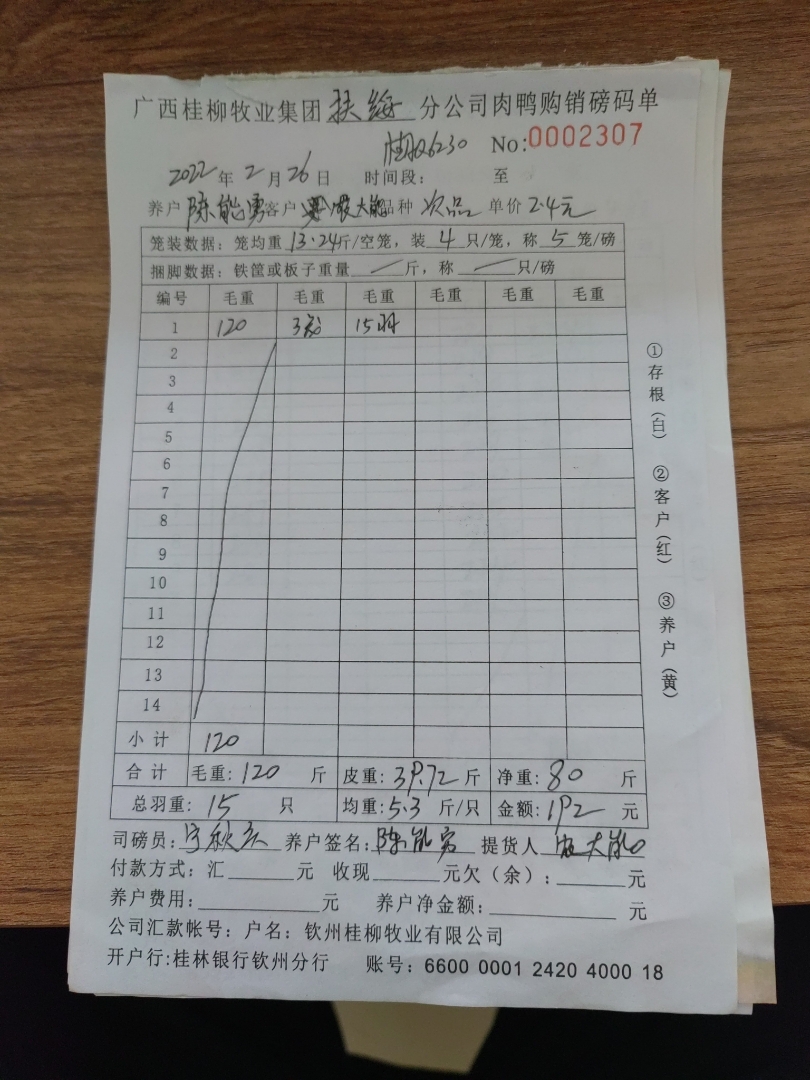 广西桂柳牧业集团 扶绥 分公司肉鸭购销磅码单
No:0002307
2022年2月26日 时间段: 至
养户 陈能勇 客户 大能 品种 次品 单价 2.4元
笼装数据: 笼均重 13.24斤/空笼, 装 4 只/笼, 称 5 笼/磅
捆脚数据: 铁筐或板子重量 / 斤, 称 / 只/磅
编号 毛重 毛重 毛重 毛重 毛重 毛重
1 120 3 15羽
2
3
4
5
6
7
8
9
10
11
12
13
14
小计 120
合计 毛重: 120 斤 皮重: 39.72 斤 净重: 80 斤
总羽重: 15 只 均重: 5.3 斤/只 金额: 192 元
司磅员: 秋 养户签名: 陈能勇 提货人 大能
付款方式: 汇 元 收现 元欠(余): 元
养户费用: 元 养户净金额: 元
公司汇款帐号: 户名: 钦州桂柳牧业有限公司
开户行:桂林银行钦州分行 账号: 6600 0001 2420 4000 18
①存根(白) ②客户(红) ③养户(黄)